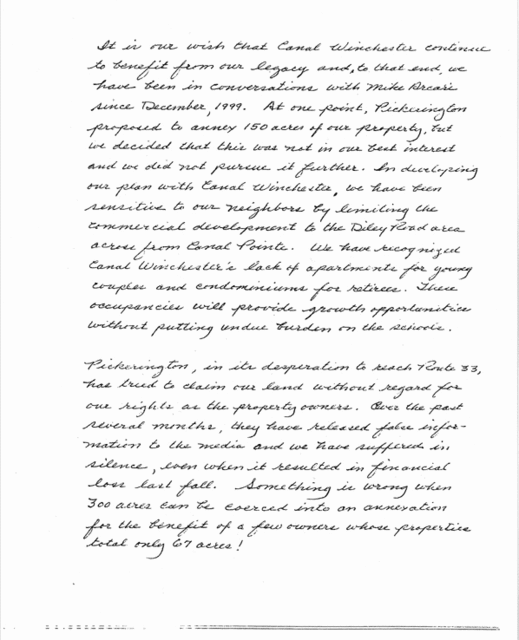 It is our wish that Canal Winchester continue
to benefit from our legacy and, to that end, we
have been in conversations with Mike Arcari
since December, 1999. At one point, Pickerington
proposed to annex 150 acres of our property, but
we decided that this was not in our best interest
and we did not pursue it further. In developing
our plan with Canal Winchester, we have been
sensitive to our neighbors by limiting the
commercial development to the Diley Road area
across from Canal Pointe. We have recognized
Canal Winchester's lack of apartments for young
couples and condominiums for retirees. These
occupancies will provide growth opportunities
without putting undue burden on the schools.
Pickerington, in its desperation to reach Route 33,
has tried to claim our land without regard for
our rights as the property owners. Over the past
several months, they have released false infor-
mation to the media and we have suffered in
silence, even when it resulted in financial
loss last fall. Something is wrong when
300 acres can be coerced into an annexation
for the benefit of a few owners whose properties
total only 67 acres!